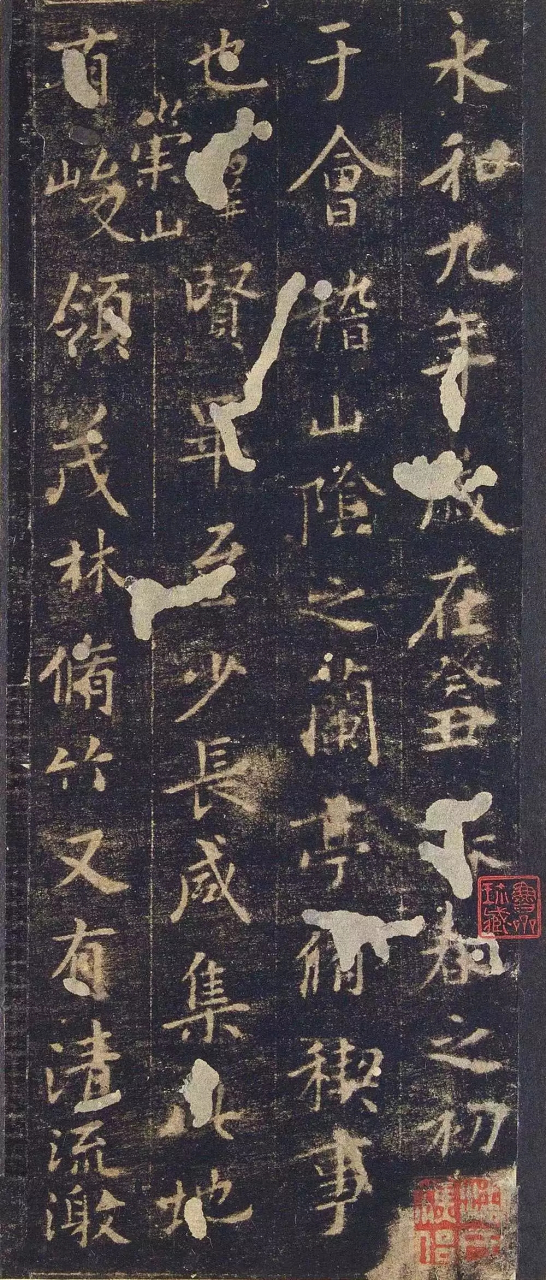 永和九年歲在癸丑春之初
于會稽山陰之蘭亭脩稧事
也羣賢畢至少長咸集此地
有崇山峻領茂林脩竹又有清流激